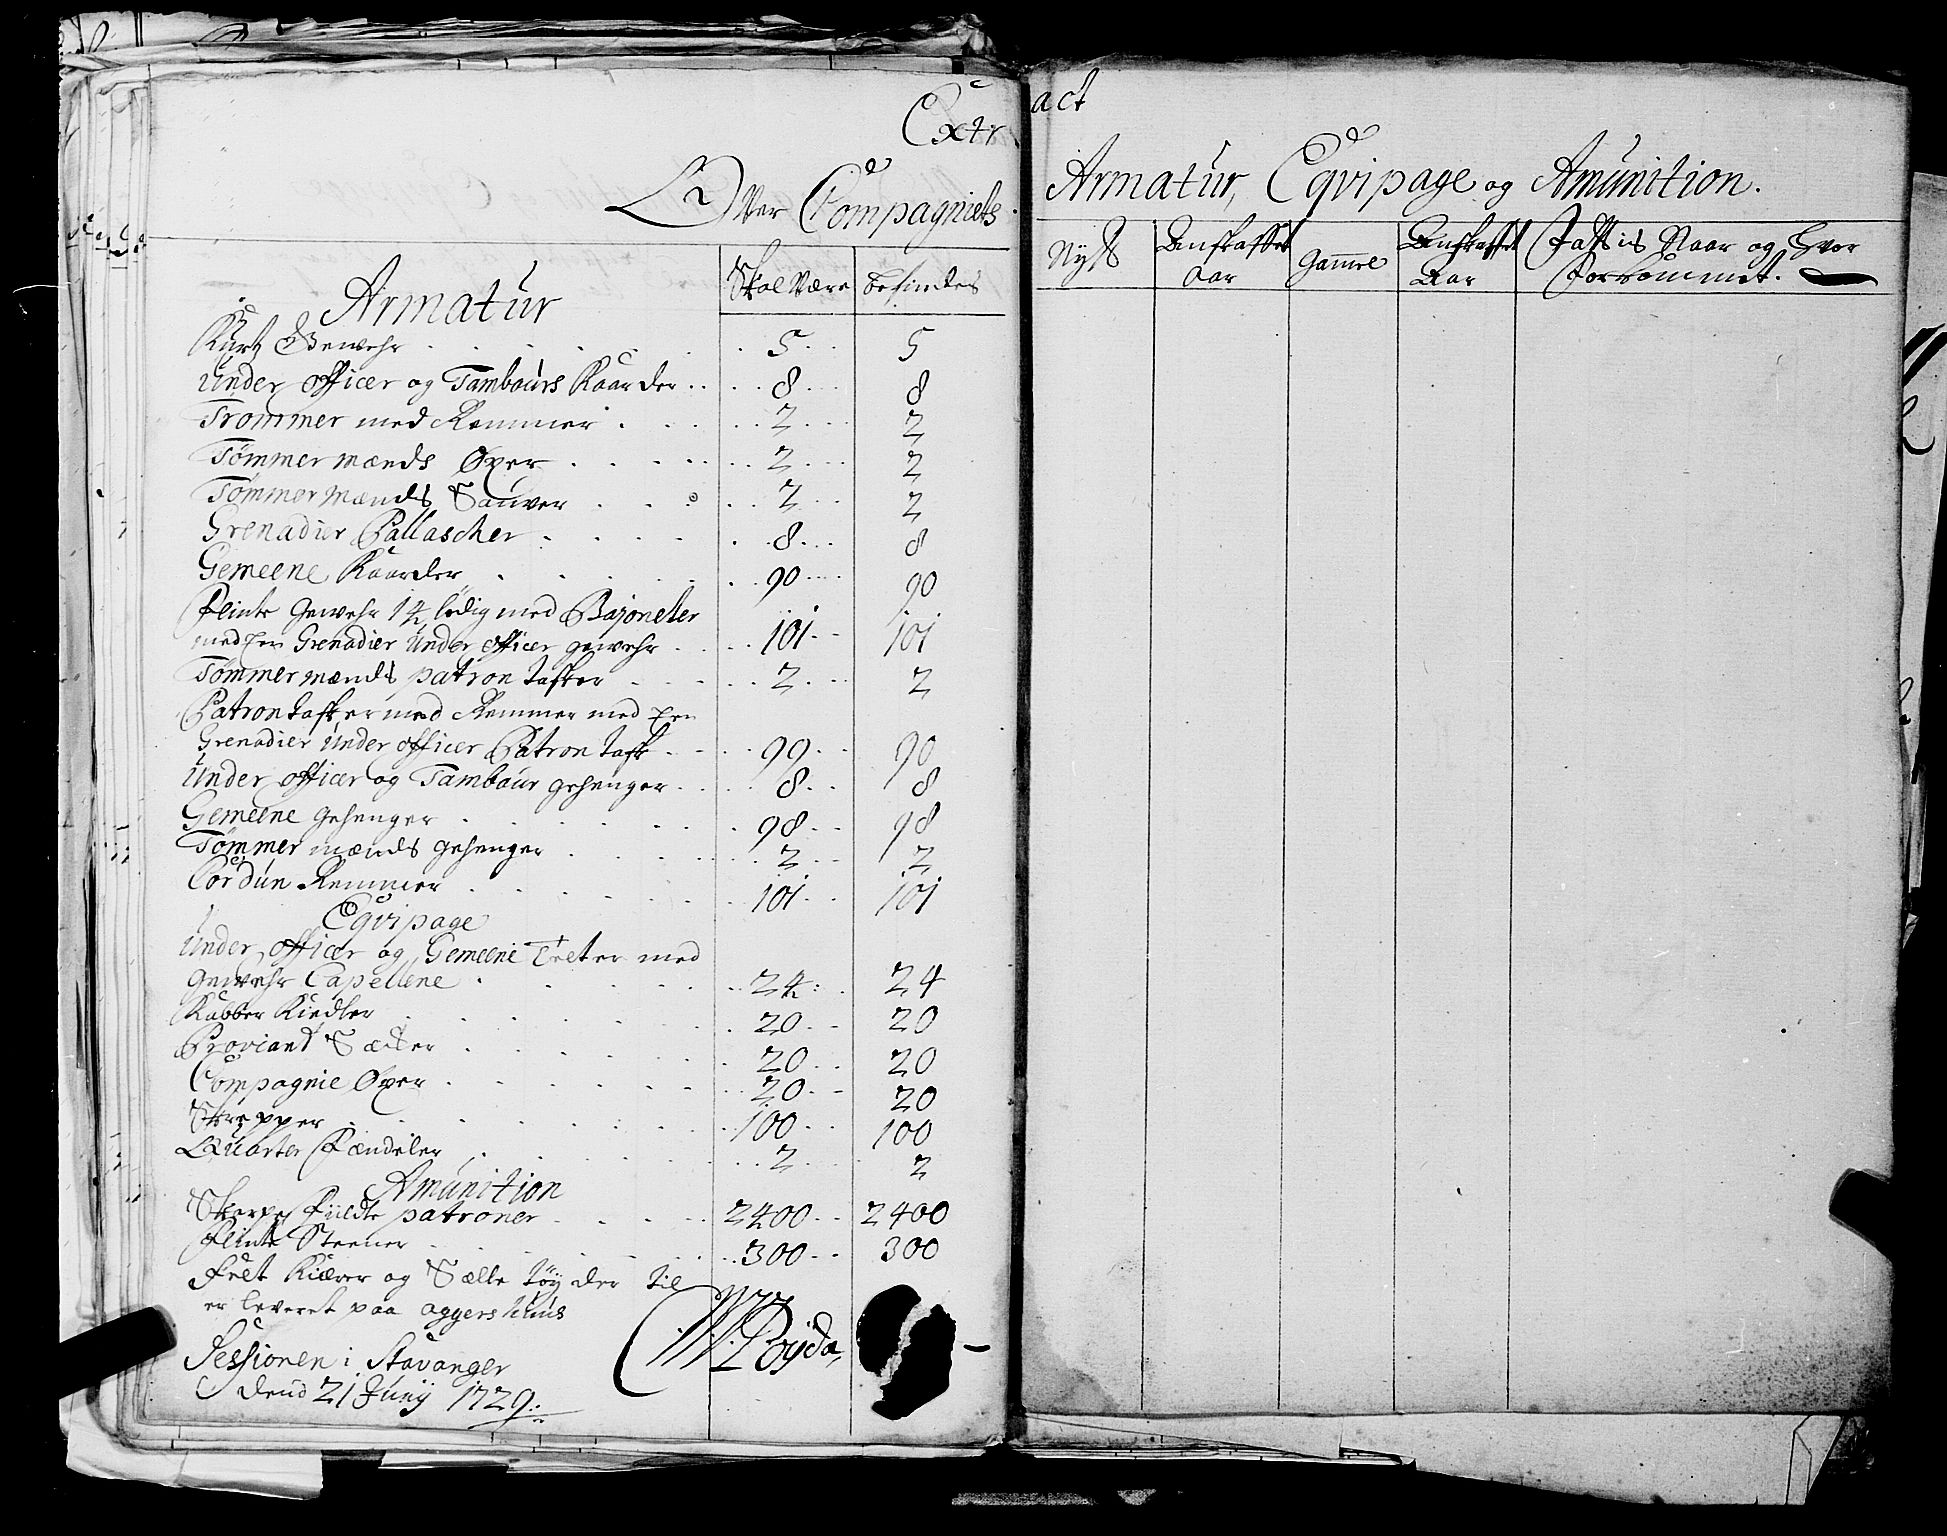 Extract
Over Compagniets Armatur, Eqvipage og Amunition.
Armatur | Skal Være | befindes | Nyt | Anskaffet Aar | Gammel | Anskaffet Aar | Cassis Naar og hvor Forkommet.
Kurtz Gewehr 5 5
Under officer og Tambours Kaarder 8 8
Trommer med Remmer 2 2
Tømmermænds Øxer 2 2
Tømmermænds Sauver 2 2
Grenadier Pallascher 8 8
Gemeene Kaarder 90 90
Flinte Gewehr 14 lødig med Bajoneter
med een Grenadier Under officer gewehr 101 101
Tømmermænds patron tasker 2 2
Patrontasker med Remmer med een
Grenadier Under officer Patron task 99 90
Under officer og Tambour gehenger 8 8
Gemeene gehenger 98 98
Tømmermænds gehenger 2 2
Cordun Remmer 101 101
Eqvipage
Under officer og Gemeene Telter med
gewehr Capellene 24 24
Kabber Kiedler 20 20
Proviant Sæcker 20 20
Compagnie Øxer 20 20
Skrepper 100 100
Quarter Fændeler 2 2
Amunition
Skarpe Fyldte patroner 2400 2400
Flinte Steener 300 300
Felt Kiærer og Sælle tøy der til
er leveret paa aggershuus
Sessionen i Stavanger
dend 21 Junij 1729.